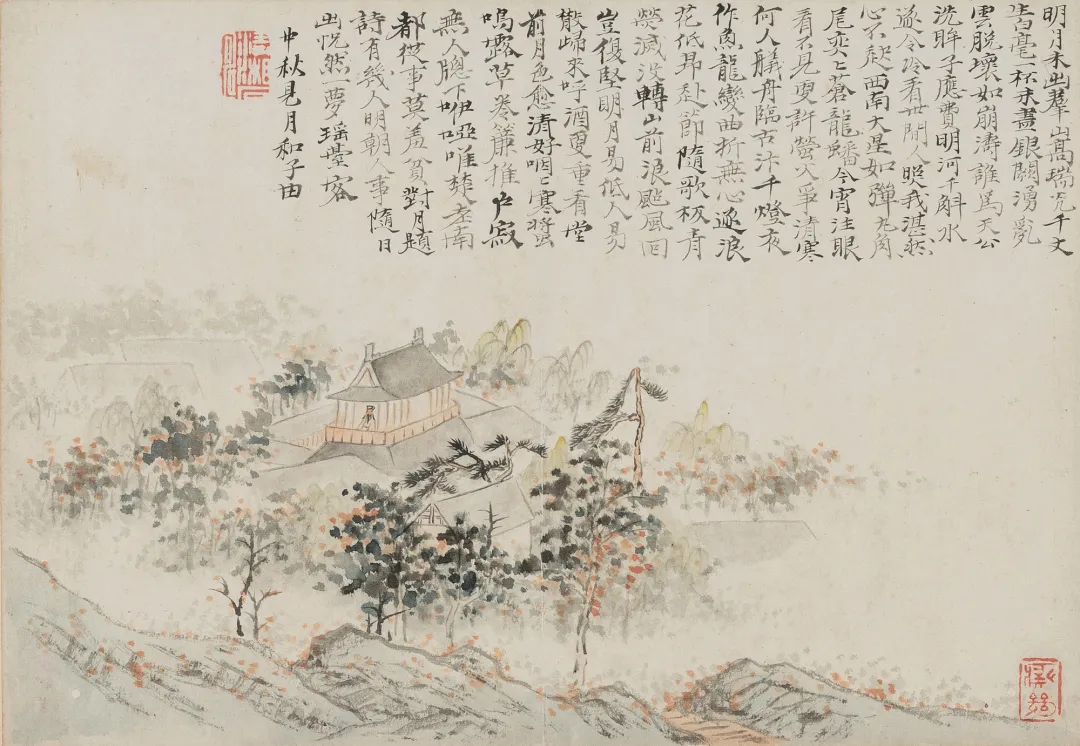 明月未出羣山高瑞光千丈
生白毫一杯未盡銀闕湧亂
雲脫壞如崩濤誰爲天公
洗眸子應費明河千斛水
遂令冷看世間人照我湛然
心不起西南火星如彈丸角
尾奕々蒼龍蟠今宵注眼
看不見更許螢火爭清寒
何人艤舟臨古汴千燈夜
作魚龍變曲折無心逐浪
花低昂赴節隨歌板青
熒滅没轉山前浪颭風回
豈復堅明月易低人易
散歸來呼酒更重看堂
前月色愈清好咽々寒螿
鳴露草卷簾推户寂
無人窗下咿啞唯楚老南
都從事莫羞貧對月題
詩有幾人明朝人事隨日
出怳然一夢瑤臺客
中秋見月和子由